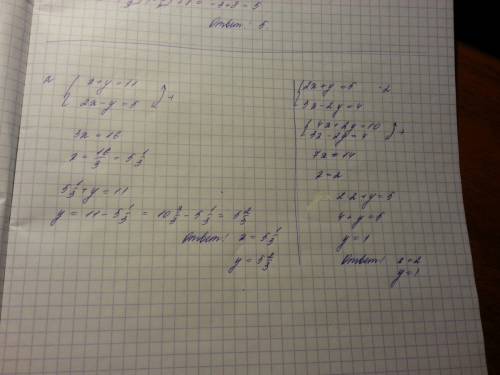 Ответ: 5.
{ x+y=11
{ 2x-y=5 } +
3x=16
x=16/3=5 1/3
5 1/3+y=11
y=11-5 1/3=10 3/3-5 1/3=5 2/3
Ответ: x=5 1/3
y=5 2/3
{ 2x+y=5 ·2
{ 3x-2y=4
{ 4x+2y=10
{ 3x-2y=4 } +
7x=14
x=2
2·2+y=5
4+y=5
y=1
Ответ: x=2
y=1